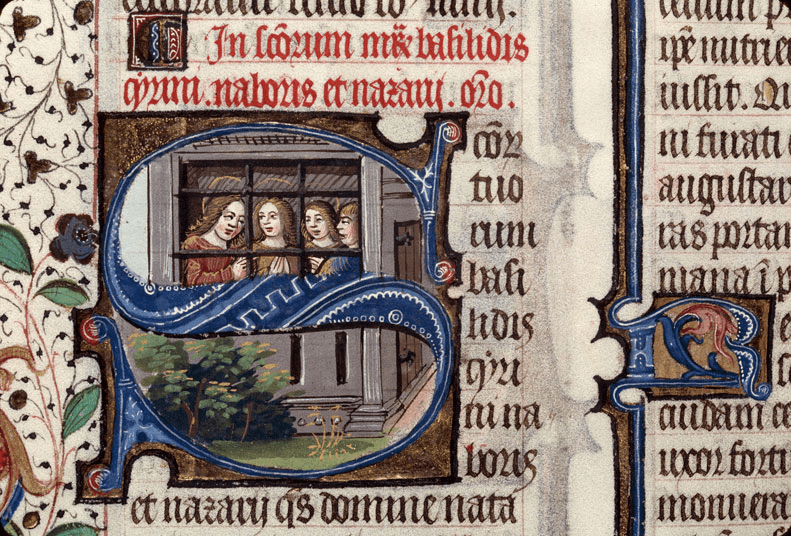 In scōrum mr̄ basilidis
cyrini. naboris et nazarij. oro.
cōr
tuo
rum
basi
lidis
cyri
ni na
boris
et nazarij qs domine nata
ipe nutrie
iussit. Qu
ni furati
augustar
ras portar
mana ī p
cuidam ce
uxor forti
monuera